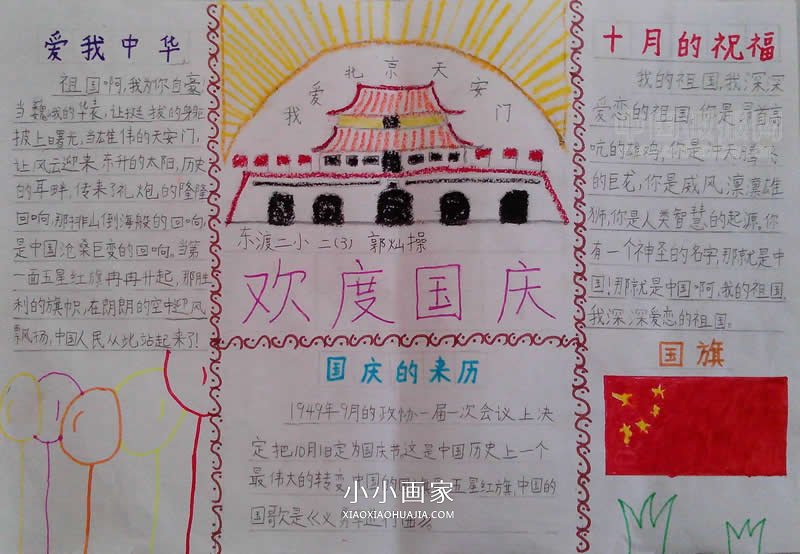 爱我中华
祖国啊,我为你自豪,
当巍峨的华表,让挺拔的身躯
披上曙光,当雄伟的天安门,
让风云迎来东升的太阳,历史
的耳畔,传来了礼炮的隆隆
回响,那排山倒海般的回响,
是中国沧桑巨变的回响。当第
一面五星红旗冉冉升起,那胜
利的旗帜,在阴朗的空中迎风
飘扬,中国人民从此站起来了!
我爱北京天安门
东渡二小 二(3) 郭灿操
欢度国庆
国庆的来历
1949年9月的政协一届一次会议上决
定把10月1日定为国庆节,这是中国历史上一个
最伟大的转变,中国的 五星红旗,中国的
国歌是《义勇军进行曲》。
十月的祝福
我的祖国,我深深
爱恋的祖国,你是昂首高
吭的雄鸡,你是冲天腾飞
的巨龙,你是威风凛凛雄
狮,你是人类智慧的起源。你
有一个神圣的名字,那就是中
国!那就是中国啊,我的祖国
我深深爱恋的祖国。
国旗
小小画家
XIAOXIAOHUAJIA.COM